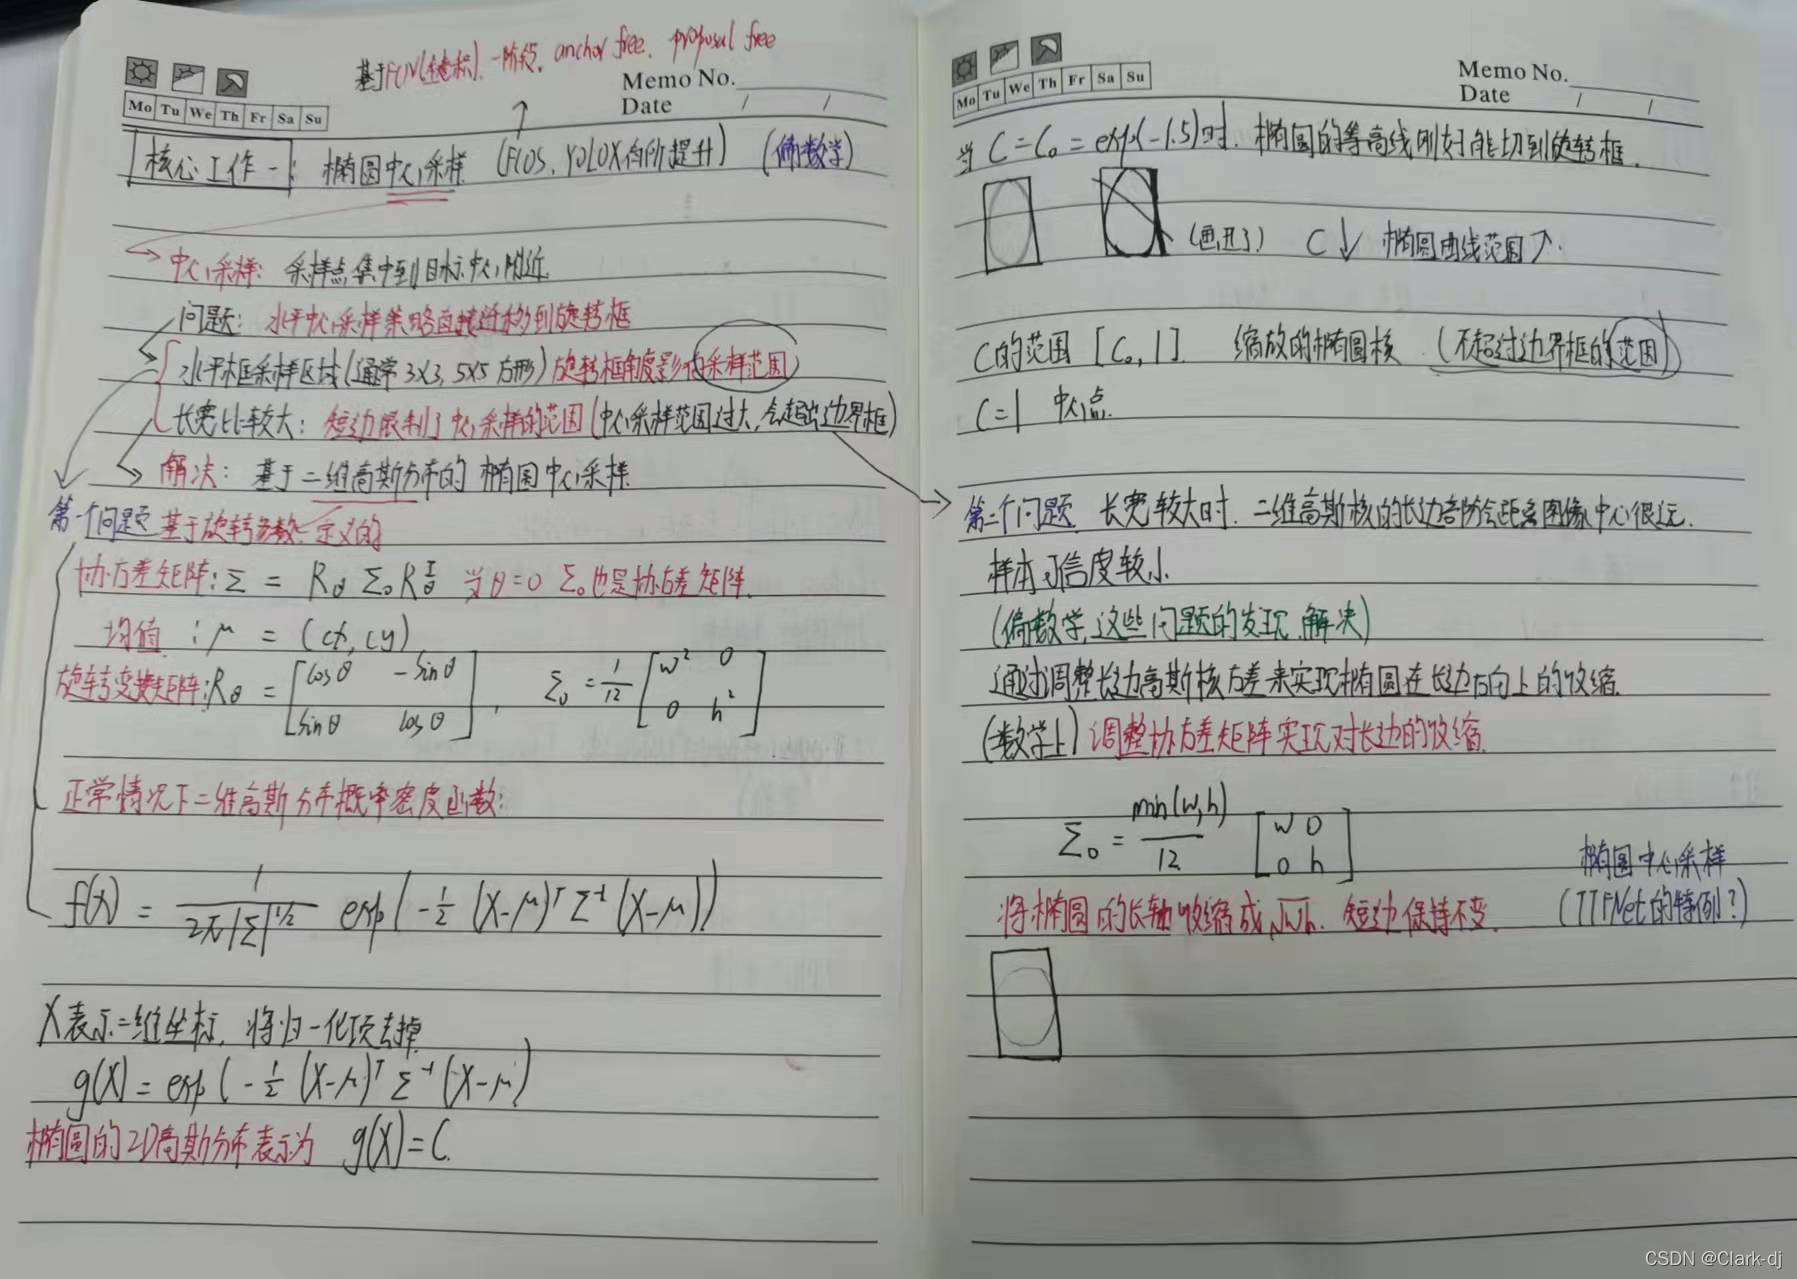 基于FCN(全卷积)、一阶段、anchor free、proposal free
Memo No.
Date / /
Mo Tu We Th Fr Sa Su
核心工作一: 椭圆中心采样 (FCOS、YOLOX有所提升) (偏数学)
中心采样: 采样点集中到目标中心附近
问题: 水平中心采样策略直接迁移到旋转框
水平框采样区域(通常3X3, 5X5方形) 旋转框角度影响采样范围
长宽比较大: 短边限制了中心采样的范围(中心采样范围过大,会超出边界框)
解决: 基于二维高斯分布的椭圆中心采样
第一个问题 基于旋转参数定义的
协方差矩阵: Σ = Rθ Σ₀ Rθᵀ 当θ=0 Σ₀也是协方差矩阵.
均值 : μ = (cx, cy)
旋转变换矩阵: Rθ = [cosθ -sinθ; sinθ cosθ], Σ₀ = 1/12 [w² 0; 0 h²]
正常情况下二维高斯分布概率密度函数:
f(X) = 1/(2π|Σ|^{1/2}) exp(-1/2 (X-μ)ᵀ Σ⁻¹ (X-μ))
X表示二维坐标, 将归一化项去掉
g(X) = exp(-1/2 (X-μ)ᵀ Σ⁻¹ (X-μ))
椭圆的2D高斯分布表示为 g(X)=C.
Memo No.
Date / /
Mo Tu We Th Fr Sa Su
当 C=C₀=exp(-1.5)时. 椭圆的等高线刚好能切到旋转框.
(画丑了) C↓ 椭圆曲线范围↗.
C的范围 [C₀,1] 缩放的椭圆核 (不超过边界框的范围)
C=1 中心点.
第二个问题 长宽较大时. 二维高斯核的长边高阶会距离图像中心很远.
样本可信度较小
(偏数学,这些问题的发现、解决)
通过调整长边高斯核方差来实现椭圆在长边方向上的收缩.
(数学上) 调整协方差矩阵实现对长边的收缩.
Σ₀ = min(w,h)/12 [w 0; 0 h]
椭圆中心采样
将椭圆的长轴收缩成√wh. 短边保持不变. (TTFNet的特例?)
CSDN @Clark-dj